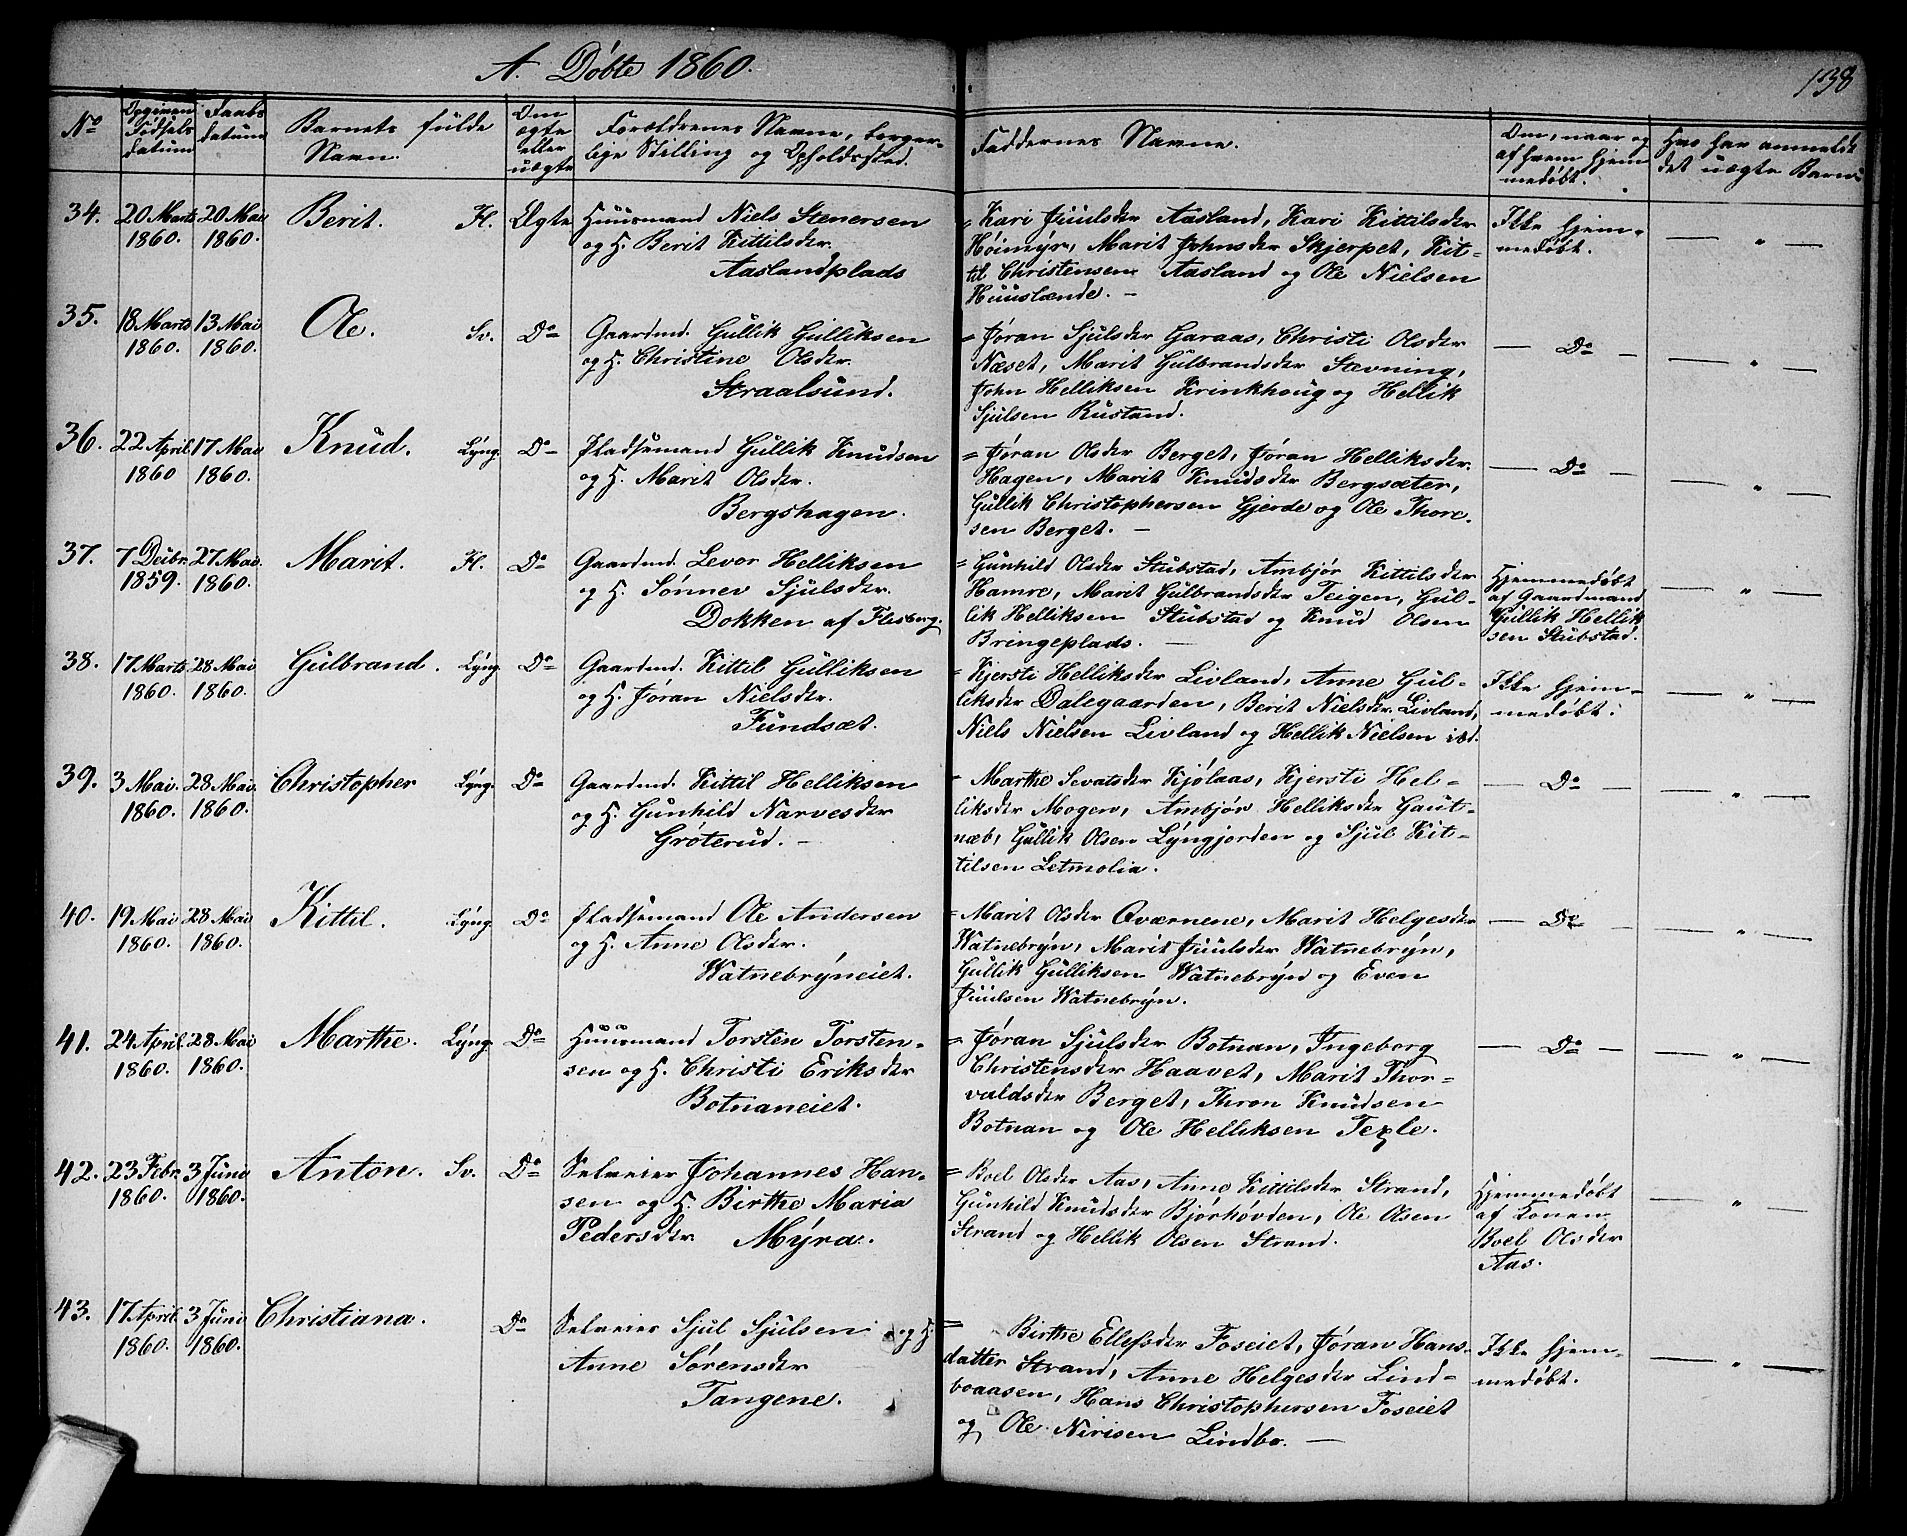 A. Döbte 1860.
138
No
Opgiven Fødsels datum
Daabs datum
Barnets fulde Navn.
Om ægte eller uægte
Forældrenes Navne, borger-
lige Stilling og Opholdssted.
Faddernes Navne.
Om, naar og af hvem hjem medøbt.
Hvo har anmeldt
det uægte Barn
34. 20 Marts 1860. 20 Mai 1860. Berit. H. Ægte
Huusmand Niels Stenersen
og H. Berit Kittilsder.
Aaslandplads
= Kari Juulsder Aasland, Kari Kittilsder
Höimyr, Marit Johnsder Skjerpet, Kit-
til Christensen Aasland og Ole Nielsen
Huuslænde. -
Ikke hjem-
medøbt.
— " —
35. 18 Marts 1860. 13 Mai 1860. Ole. Sv. Do
Gaardmd. Gullik Gulliksen
og H. Christine Olsder.
Straalsund.
= Jøran Sjulsder Garaas, Christi Olsder
Næset, Marit Gulbrandsder Stevning,
John Helliksen Krinkhoug og Hellik
Sjulsen Rustand.
— Do —
— " —
36. 22 April 1860 17 Mai 1860. Knud. Lyng. Do
Pladsemand Gullik Knudsen
og H. Marit Olsder.
Bergshagen.
= Jøran Olsder Berget, Jøran Helliksder.
Hagen, Marit Knudsder Bergsæter,
Gullik Christophersen Gjerde og Ole Thore-
sen Berget. —
— Do —
— " —
37. 7 Decbr. 1859. 27 Mai. 1860. Marit. H. Do
Gaardmd. Levor Helliksen
og H. Sønnev Sjulsder.
Dokken af Flesberg.
= Gunhild Olsder Stubstad, Ambjør Kittilsder
Hamre, Marit Gulbrandsder Teigen, Gul-
lik Helliksen Stubstad og Knud Olsen
Bringeplads. —
Hjemmedøbt
af Gaardmand
Gullik Hellik
sen Stubstad.
— " —
38. 17 Marts 1860. 28 Mai 1860. Gulbrand. Lyng Do
Gaardmd. Kittil Gulliksen
og H. Jøran Nielsder.
Fundsæt.
= Kjersti Helliksder Livland, Anne Gul-
liksder Dalegaarden, Berit Nielsder Livland,
Niels Nielsen Livland og Hellik Nielsen ibd.
Ikke hjem-
medøbt.
— " —
39. 3 Mai. 1860. 28 Mai. 1860. Christopher Lyng. Do
Gaardmd. Kittil Helliksen
og H. Gunhild Narvesder
Grøterud. -
- Marthe Sevatsder Kjølaas, Kjersti Hel-
liksder Mogen, Ambjør Helliksder Gaut-
næb, Gullik Olsen Lyngjorden og Sjul Kit-
tilsen Letmolia.
— Do —
— " —
40. 19 Mai 1860. 28 Mai 1860. Kittil. Lyng. Do
Pladsemand Ole Andersen
og H. Anne Olsder.
Watnebryneiet.
= Marit Olsder Qværnene, Marit Helgesder
Watnebryn, Marit Juulsder Watnebryn,
Gullik Gulliksen Watnebryn og Even
Juulsen Watnebryn.
— Do —
— " —
41. 24 April. 1860. 28 Mai 1860. Marthe. Lyng. Do
Huusmand Torsten Torsten-
sen og H. Christi Eriksder
Botnaneiet.
= Jøran Sjulsder Botnan, Ingeborg
Christensder Haavet, Marit Thor-
valdsder Berget, Thron Knudsen
Botnan og Ole Helliksen Texle.
— Do —
— " —
42. 23 Febr. 1860. 3 Juni 1860. Anton. Sv. Do
Selveier Johannes Han-
sen og H. Birthe Maria
Pedersder. Myra.
= Boel Olsder Aas, Anne Kittilsder Strand,
Gunhild Knudsder Bjørhøvden, Ole Olsen
Strand og Hellik Olsen Strand.
Hjemmedøbt
af Konen
Boel Olsder
Aas.
— " —
43. 17 April. 1860. 3 Juni 1860. Christiana. Do
Selveier Sjul Sjulsen og H
Anne Sørensder
Tangene.
= Birthe Ellefsder Foseiet, Jøran Hans-
datter Strand, Anne Helgesder Lind-
boaasen, Hans Christophersen Foseiet
og Ole Nirisen Lindbo. —
Ikke hjem-
medøbt.
— " —